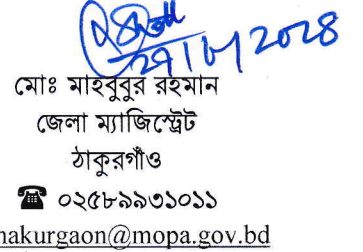 ২৭|৮|২০২৪
মোঃ মাহবুবুর রহমান
জেলা ম্যাজিস্ট্রেট
ঠাকুরগাঁও
☎ ০২৫৮৯৯৩১০১১
hakurgaon@mopa.gov.bd